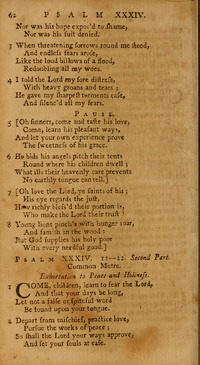 62 PSALM XXXIV.
Nor was his hope expos'd to shame,
Nor was his suit denied.
3 When threatening sorrows round me stood,
And endless fears arose,
Like the loud billows of a flood,
Redoubling all my woes.
4 I told the Lord my sore distress,
With heavy groans and tears ;
He gave my sharpest torments ease,
And silenc'd all my fears.
PAUSE.
5 [Oh sinners, come and taste his love,
Come, learn his pleasant ways,
And let your own experience prove
The sweetness of his grace.
6 He bids his angels pitch their tents
Round where his children dwell ;
What ills their heavenly care prevents
No earthly tongue can tell.]
7 [Oh love the Lord, ye saints of his ;
His eye regards the just,
How richly bless'd their portion is,
Who make the Lord their trust !
8 Young lions pinch'd with hunger roar,
And famish in the wood :
But God supplies his holy poor
With every needful good.]
PSALM XXXIV. 11–22. Second Part.
Common Metre.
Exhortation to Peace and Holiness.
1 COME, children, learn to fear the Lord,
And that your days be long,
Let not a false or spiteful word
Be found upon your tongue.
2 Depart from mischief, practice love,
Pursue the works of peace ;
So shall the Lord your ways approve,
And set your souls at ease.